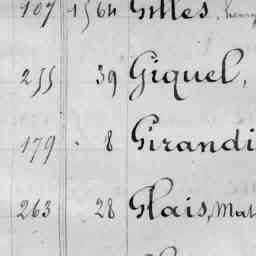 107 1564 Gilles, henry
255 39 Giquel,
179 8 Girandi
263 28 Glais, Mat